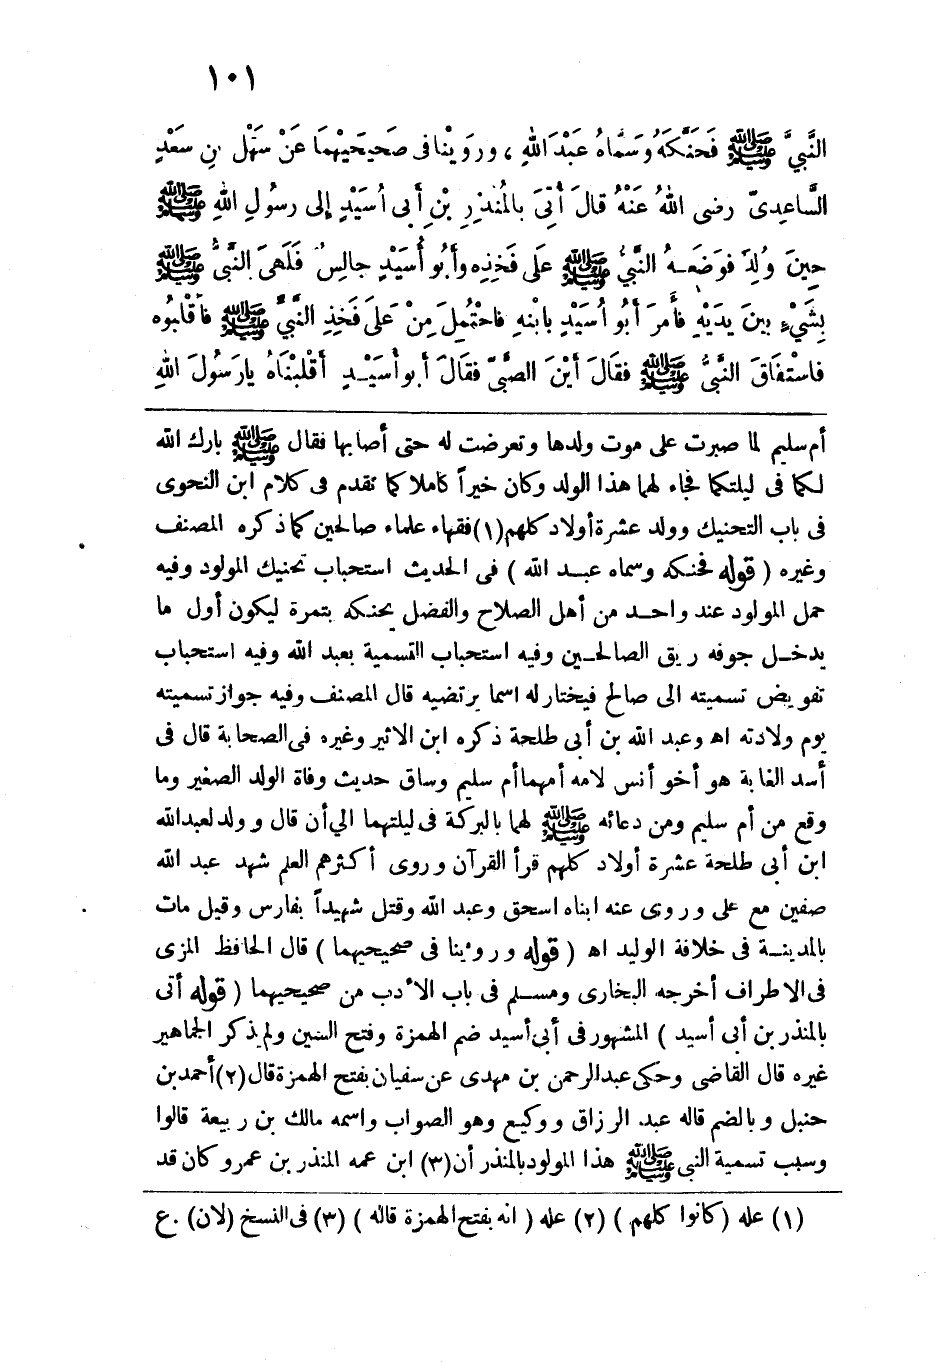 ١٠١
النَّبِيَّ ﷺ فَحَنَّكَهُ وَسَمَّاهُ عَبْدَ اللهِ ، وروَيْنا فى صَحيحَيْهِمَا عَنْ سَهْلِ بنِ سَعْدٍ
السَّاعِدِىّ رضى اللهُ عَنْهُ قالَ أُتِىَ بالمُنْذِرِ بْنِ أَبى أُسَيْدٍ إلى رسُولِ اللهِ ﷺ
حِينَ وُلِدَ فوَضَعَـهُ النبيُّ ﷺ عَلَى فَخِذِهِ وأَبُو أُسَيْدٍ جالِسٌ فَلَهىَ النَّبىُّ ﷺ
بِشَىْءٍ بينَ يدَيْهِ فأَمرَ أَبُو أُسَيْدٍ بابْنِهِ فاحْتُمِلَ مِنْ عَلَى فَخِذِ النَّبيِّ ﷺ فأَقْلَبُوه
فاسْتَفَاقَ النَّبىُّ ﷺ فقَالَ أَيْنَ الصَّبىّ فقَالَ أَبو أُسَيْـدٍ أَقْلَبْنَاهُ يارَسُولَ اللهِ
أم سليم لما صبرت على موت ولدها وتعرضت له حتى أصابها فقال ﷺ بارك الله
لكما فى ليلتكما فجاء لهما هذا الولد وكان خيراً كاملا كما تقدم فى كلام ابن النحوى
فى باب التحنيك وولد عشرة أولاد كلهم (١) فقهاء علماء صالحين كما ذكره المصنف
وغيره ( قوله فحنكه وسماه عبـد الله ) فى الحديث استحباب تحنيك المولود وفيه
حمل المولود عند واحـد من أهل الصلاح والفضل يحنكه بتمرة ليكون أول ما
يدخـل جوفه ريق الصالحـين وفيه استحباب التسمية بعبد الله وفيه استحباب
تفويض تسميته الى صالح فيختار له اسما يرتضيه قال المصنف وفيه جواز تسميته
يوم ولادته اه وعبد الله بن أبى طلحة ذكره ابن الاثير وغيره فى الصحابة قال فى
أسد الغابة هو أخو أنس لامه أمهما أم سليم وساق حديث وفاة الولد الصغير وما
وقع من أم سليم ومن دعائه ﷺ لهما بالبركة فى ليلتهما الي أن قال وولد لعبد الله
ابن أبى طلحة عشرة أولاد كلهم قرأ القرآن وروى أكثرهم العلم شهد عبد الله
صفين مع على وروى عنه ابناه اسحق وعبد الله وقتل شهيداً بفارس وقيل مات
بالمدينـة فى خلافة الوليد اه ( قوله وروينا فى صحيحيهما ) قال الحافظ المزى
فى الاطراف أخرجه البخارى ومسـلم فى باب الأدب من صحيحيهما ( قوله أتى
بالمنذر بن أبى أسيد ) المشهور فى أبى أسيد ضم الهمزة وفتح السين ولم يذكر الجماهير
غيره قال القاضى وحكى عبدالرحمن بن مهدى عن سفيان بفتح الهمزة قال (٢) أحمد بن
حنبل وبالضم قاله عبد الرزاق ووكيع وهو الصواب واسمه مالك بن ربيعة قالوا
وسبب تسمية النبى ﷺ هذا المولود بالمنذر أن (٣) ابن عمه المنذر بن عمرو كان قد
(١) عله (كانوا كلهم ) (٢) عله ( انه بفتح الهمزة قاله ) (٣) فى النسخ (لان) . ع